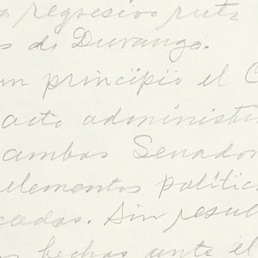 regresivo ruta
de Durango.
un principio el C
acto administ
ambos Senador
elementos polític
cadas. Sin resul
hechos ante el